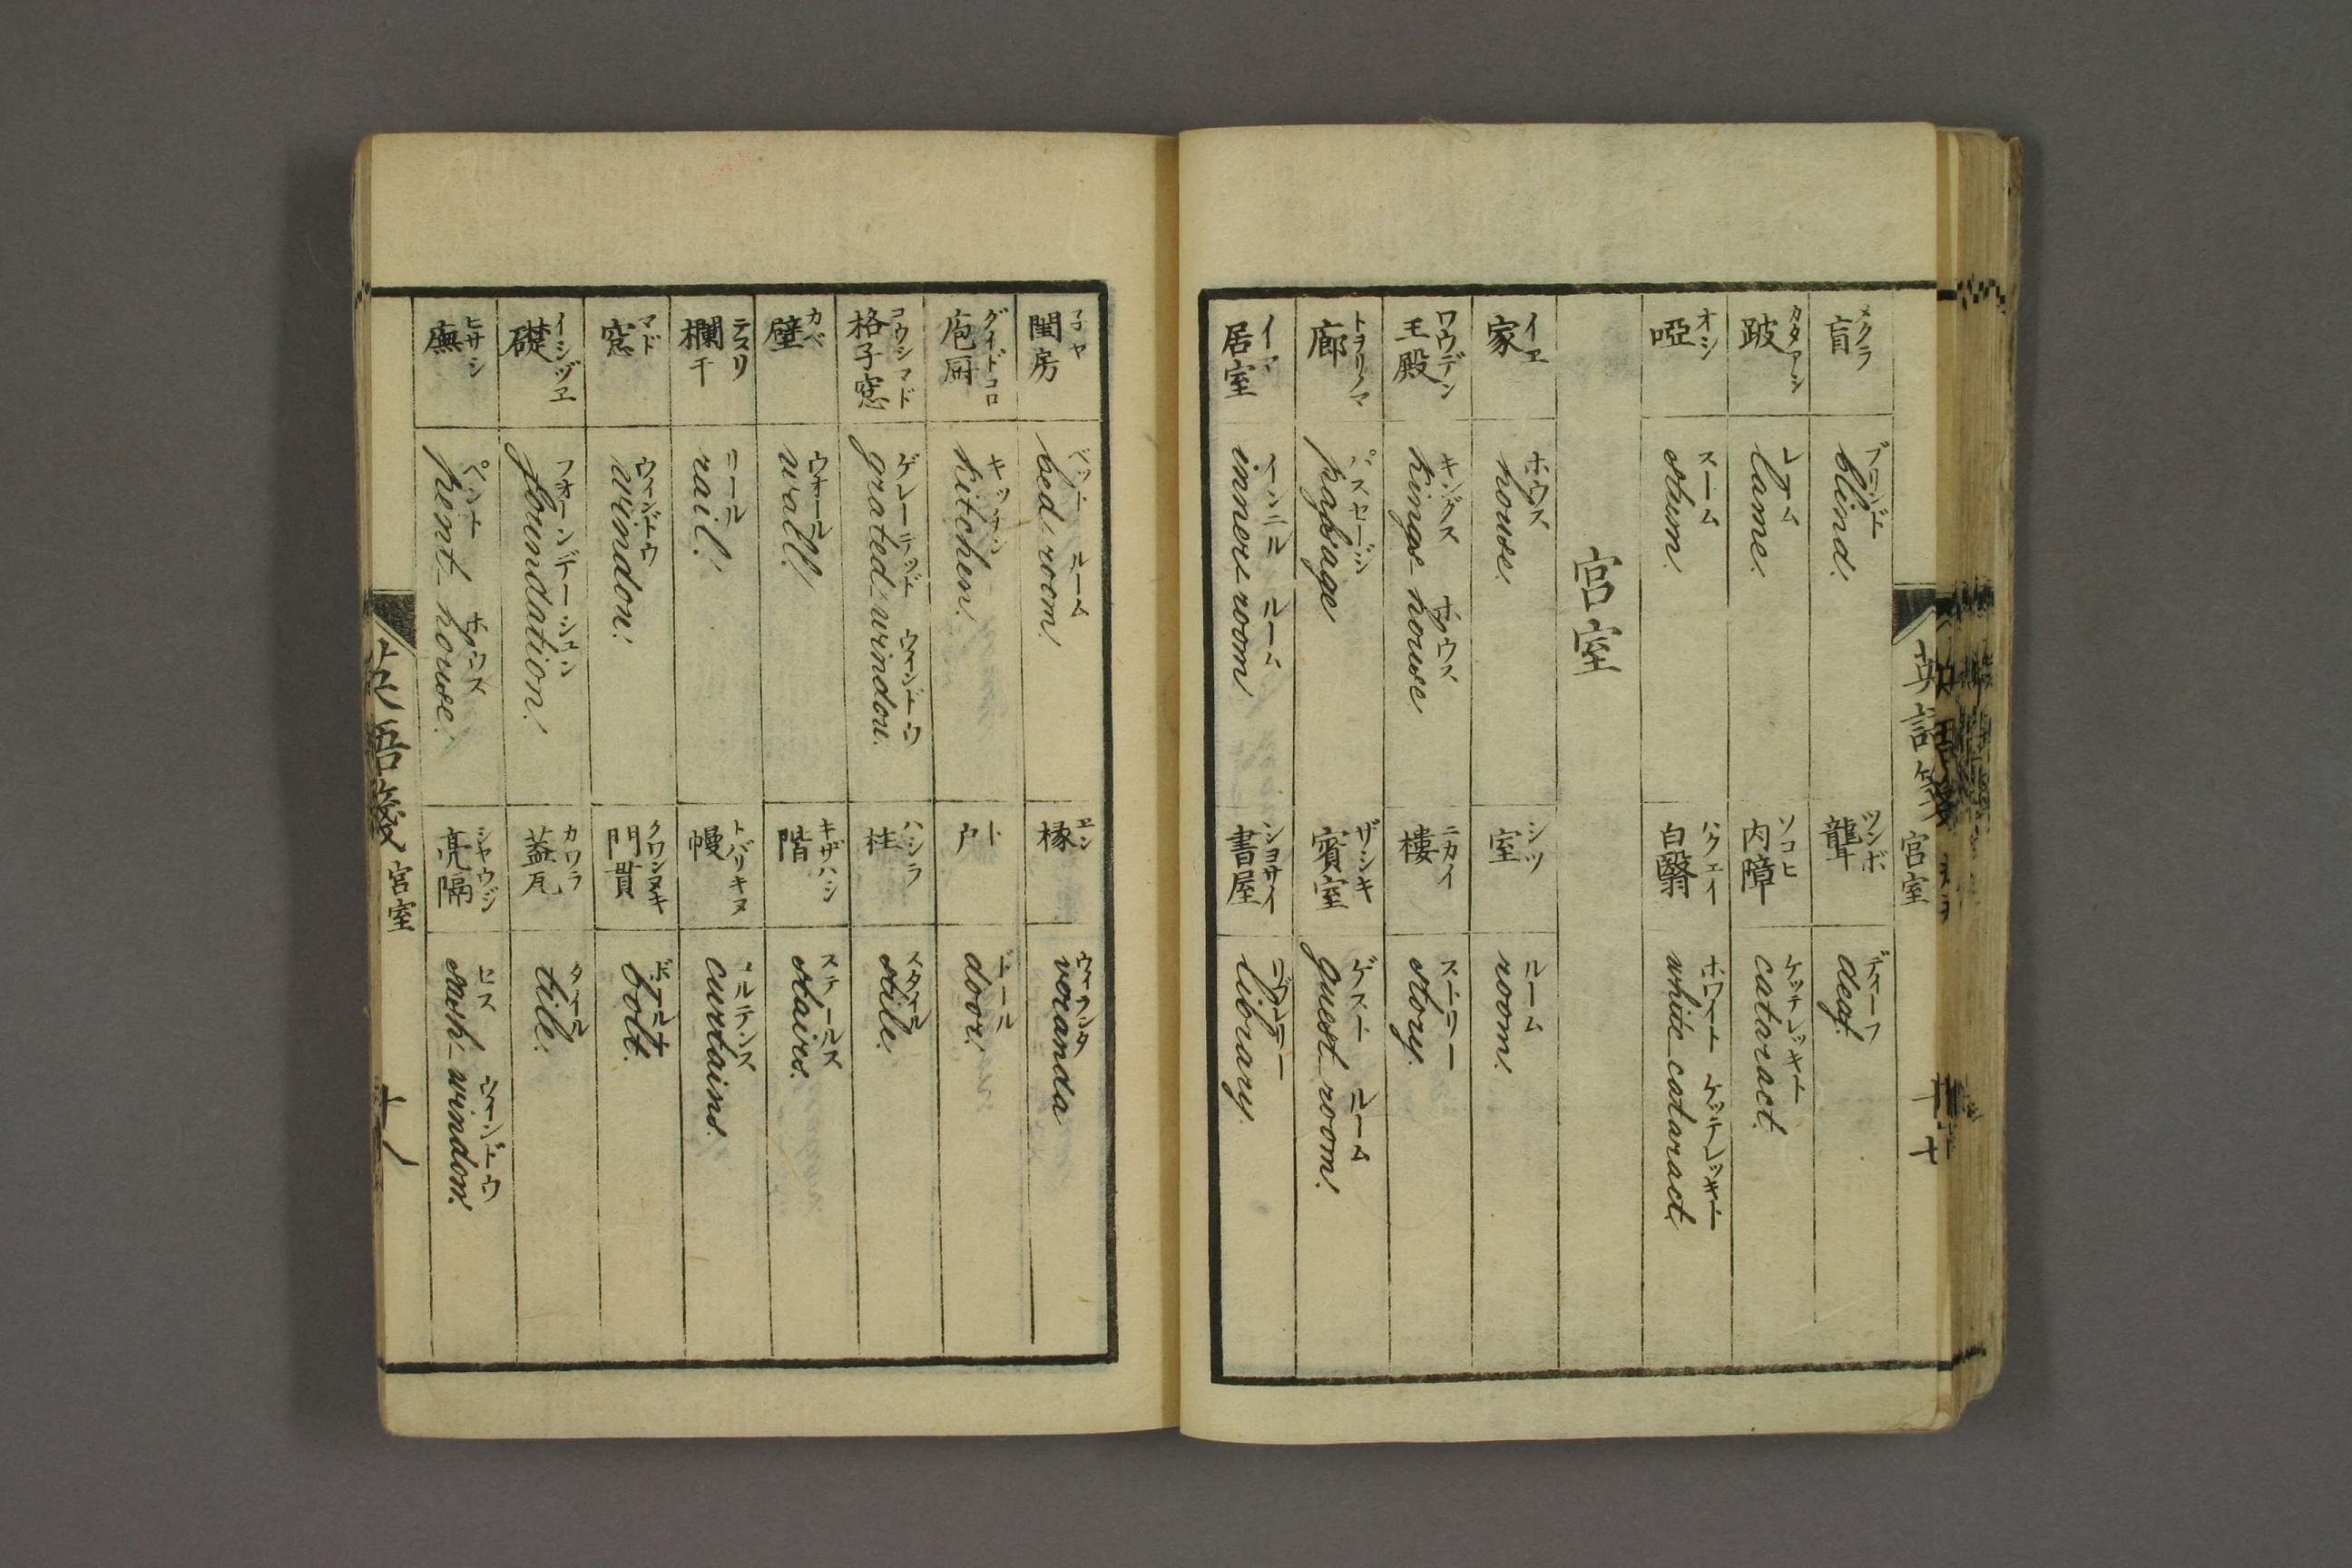 英語箋 宮室 十七
メクラ
盲
ブリンド
blind.
ツンボ
聾
ディーフ
deaf.
カタアシ
跛
レーム
lame.
ソコヒ
内障
ケッテレッキト
cataract.
オシ
啞
スーム
ハクエイ
白翳
ホワイト ケッテレッキト
white-cataract.
宮室
イヱ
家
ホウス
house.
シツ
室
ルーム
room.
ワウデン
王殿
キングス ホウス
kings-house
ニカイ
樓
ストーリー
story.
トヲリノマ
廊
パスセージ
paſsage
ザシキ
賓室
ゲスート ルーム
guest-room.
イマ
居室
インニル ルーム
inner-room
ショサイ
書屋
library.
子ヤ
閨房
ベット ルーム
bed-room.
ヱン
椽
ウィランダ
veranda
ダイドコロ
庖厨
キッチン
kitchen.
ト
户
ドール
door.
コウシマド
格子窓
ゲレーテッド ウインドウ
grated-window.
ハシラ
柱
スタイル
stile.
カベ
壁
ウオール
wall.
キザハシ
階
ステールス
stairs.
テスリ
欄干
リール
rail.
トバリキヌ
幔
コルテンス
curtains.
マド
窓
ウインドウ
window.
クワンヌキ
門貫
ボールト
bolt.
イシヅヱ
礎
フオーンデーシュン
foundation.
カワラ
蓋瓦
タイール
tile.
ヒサシ
廡
ペント ホウス
pent-house.
シヤウジ
亮隔
セス ウインドウ
sash-window.
英語箋 宮室 十八